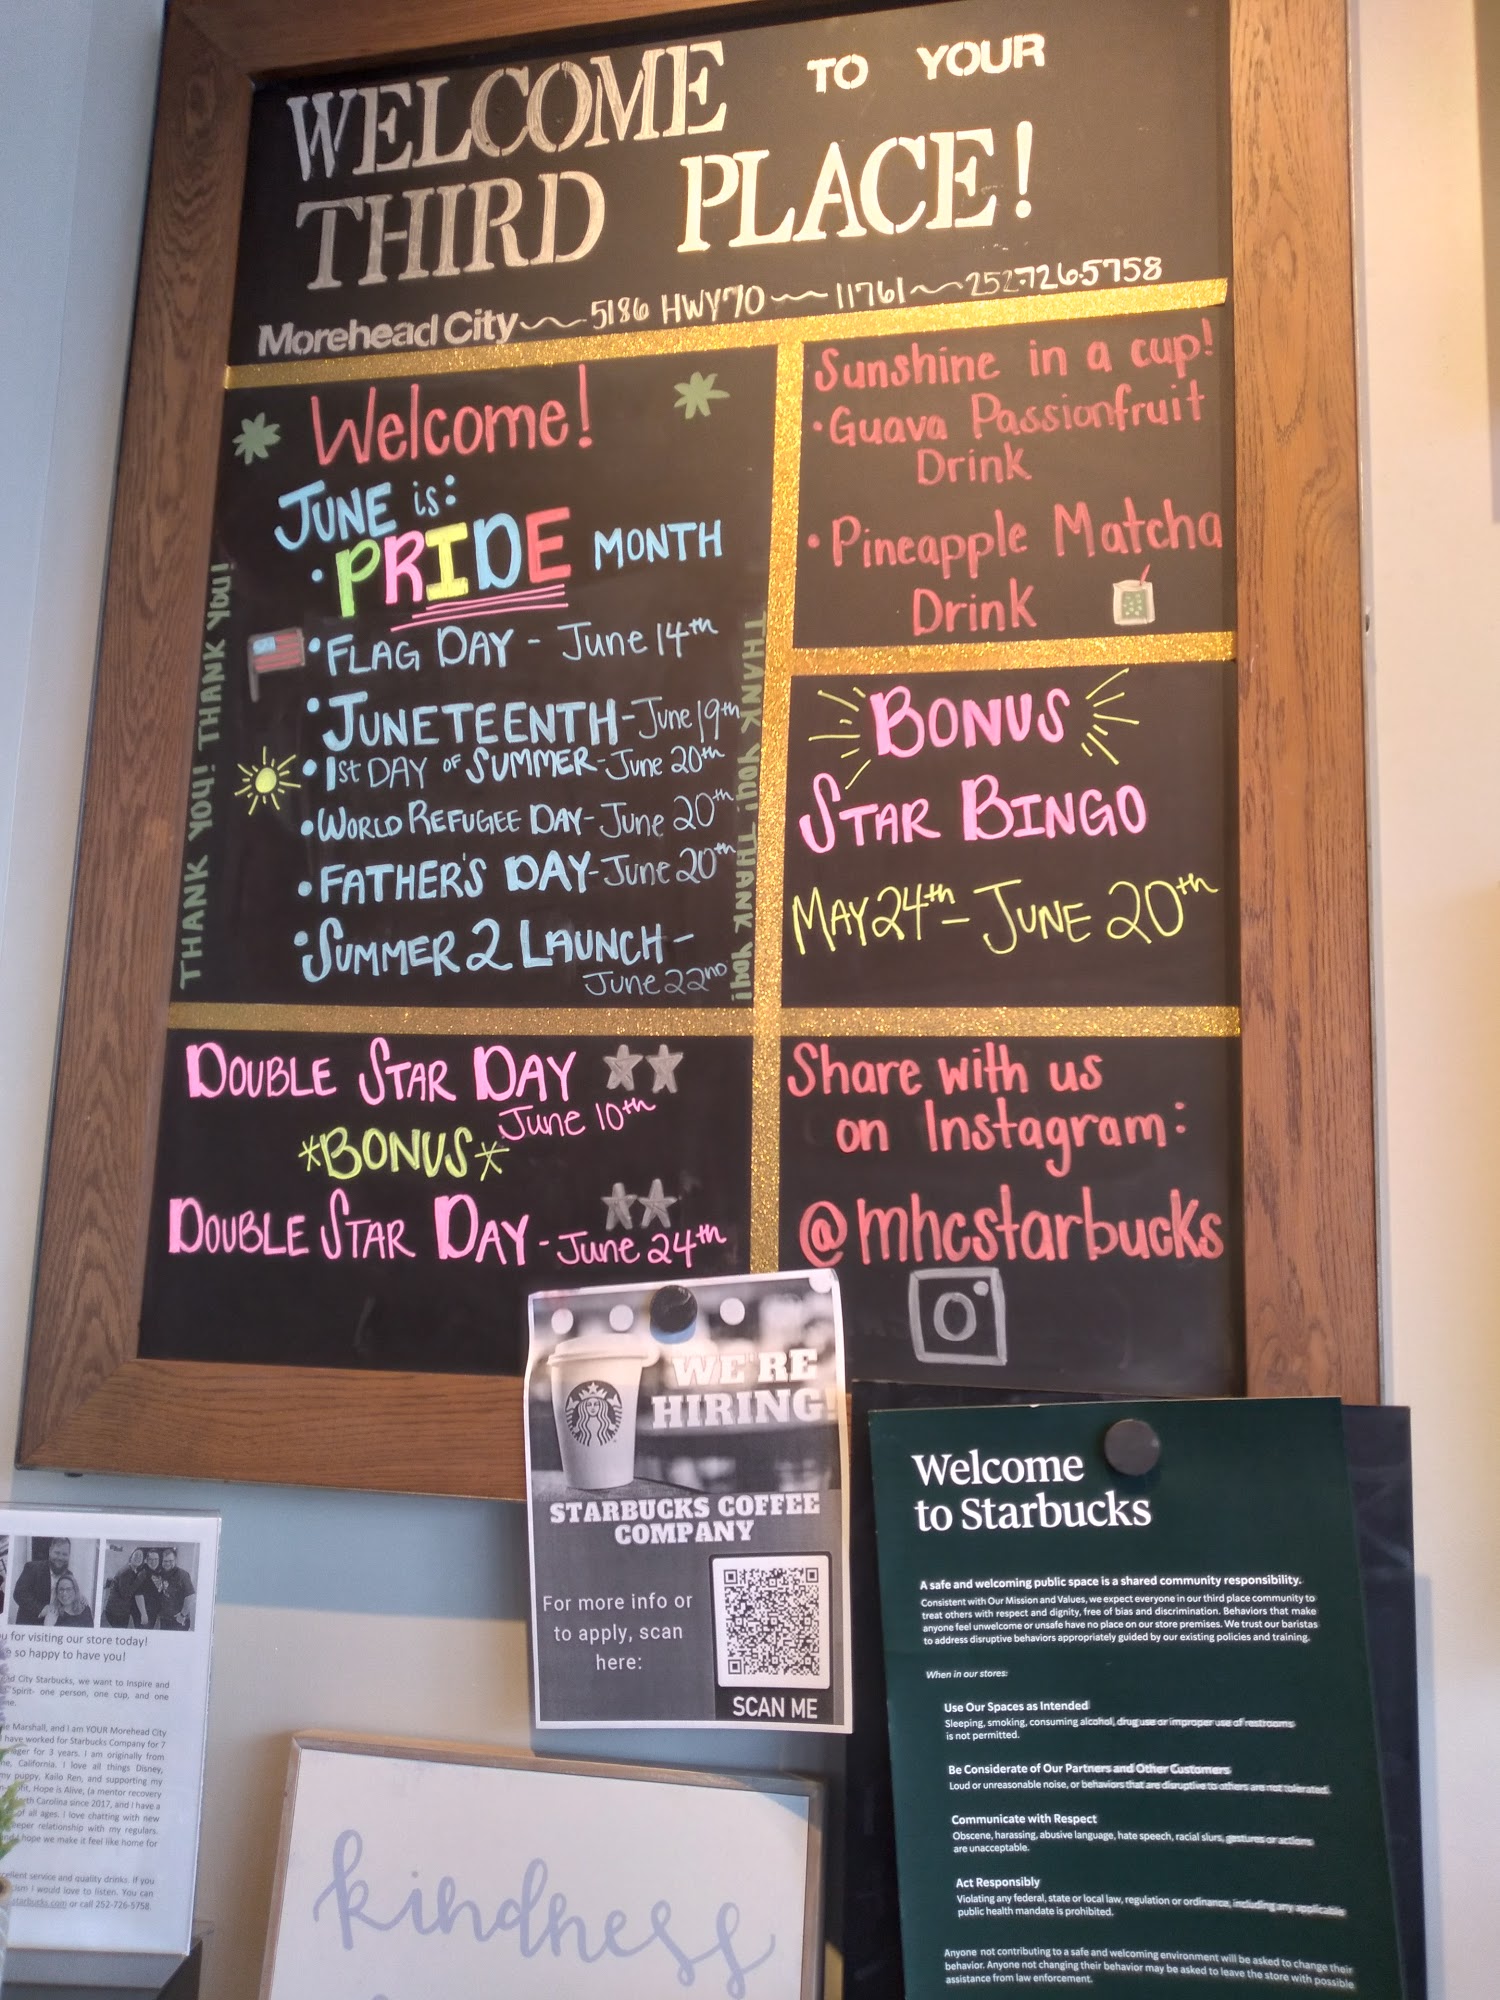 WELCOME TO YOUR
THIRD PLACE!
Morehead City 5186 HWY 70 11761 252.726.5758
Welcome!
JUNE is:
• PRIDE MONTH
• FLAG DAY - June 14th
• JUNETEENTH - June 19th
• 1st DAY OF SUMMER - June 20th
• WORLD REFUGEE DAY - June 20th
• FATHER'S DAY - June 20th
• SUMMER 2 LAUNCH -
June 22nd
THANK YOU! THANK YOU!
THANK YOU! THANK YOU!
Sunshine in a cup!
• Guava Passionfruit
Drink
• Pineapple Matcha
Drink
BONUS
STAR BINGO
MAY 24th - JUNE 20th
DOUBLE STAR DAY
June 10th
*BONUS*
DOUBLE STAR DAY - June 24th
Share with us
on Instagram:
@mhcstarbucks
WE'RE
HIRING!
STARBUCKS COFFEE
COMPANY
For more info or
to apply, scan
here:
SCAN ME
Welcome
to Starbucks
A safe and welcoming public space is a shared community responsibility.
Consistent with Our Mission and Values, we expect everyone in our third place community to
treat others with respect and dignity, free of bias and discrimination. Behaviors that make
anyone feel unwelcome or unsafe have no place on our store premises. We trust our baristas
to address disruptive behaviors appropriately guided by our existing policies and training.
When in our stores:
Use Our Spaces as Intended
Sleeping, smoking, consuming alcohol, drug use or improper use of restrooms
is not permitted.
Be Considerate of Our Partners and Other Customers
Loud or unreasonable noise, or behaviors that are disruptive to others are not tolerated.
Communicate with Respect
Obscene, harassing, abusive language, hate speech, racial slurs, gestures or actions
are unacceptable.
Act Responsibly
Violating any federal, state or local law, regulation or ordinance, including any applicable
public health mandate is prohibited.
Anyone not contributing to a safe and welcoming environment will be asked to change their
behavior. Anyone not changing their behavior may be asked to leave the store with possible
assistance from law enforcement.
for visiting our store today!
so happy to have you!
City Starbucks, we want to Inspire and
Spirit- one person, one cup, and one
Marshall, and I am YOUR Morehead City
have worked for Starbucks Company for 7
for 3 years. I am originally from
California. I love all things Disney,
my puppy, Kailo Ren, and supporting my
Hope is Alive, (a mentor recovery
Carolina since 2017, and I have a
of all ages. I love chatting with new
relationship with my regulars.
hope we make it feel like home for
service and quality drinks. If you
I would love to listen. You can
starbucks.com or call 252-726-5758.
kindness